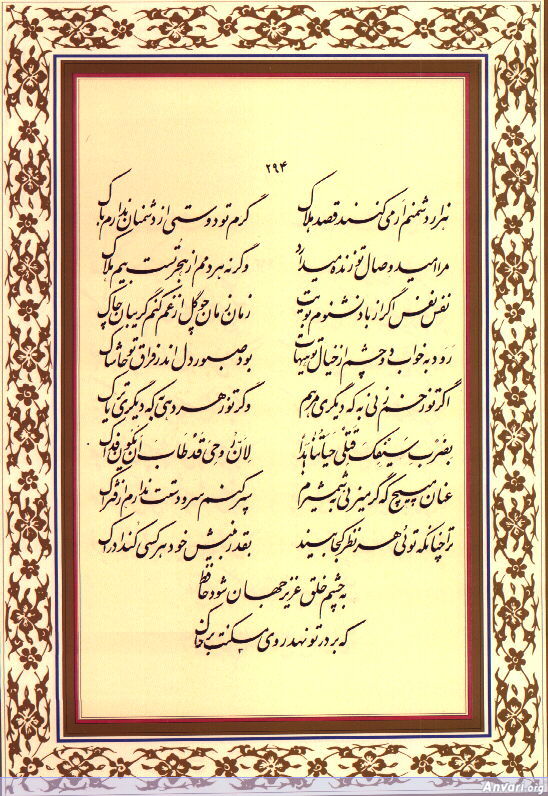 ۲۹۴
هزار دشمنم ار می کنند قصد هلاک گرم تو دوستی از دشمنان ندارم باک
مرا امید وصال تو زنده میدارد وگرنه هر دمم از هجر تست بیم هلاک
نفس نفس اگر از باد نشنوم بویت زمان زمان چو گل از غم کنم گریبان چاک
رود به خواب دو چشم از خیال تو هیهات بود صبور دل اندر فراق تو حاشاک
اگر تو زخم زنی به که دیگری مرهم وگر تو زهر دهی به که دیگری تریاک
بضرب سیفک قتلی حیاتنا ابدا لان روحی قد طاب ان یکون فداک
عنان مپیچ که گر میزنی بشمشیرم سپر کنم سر و دستت ندارم از فتراک
ترا چنانکه توئی هر نظر کجا بیند بقدر بینش خود هر کسی کند ادراک
به چشم خلق عزیز جهان شود حافظ
که بر در تو نهد روی مسکنت بر خاک
Anvari.org